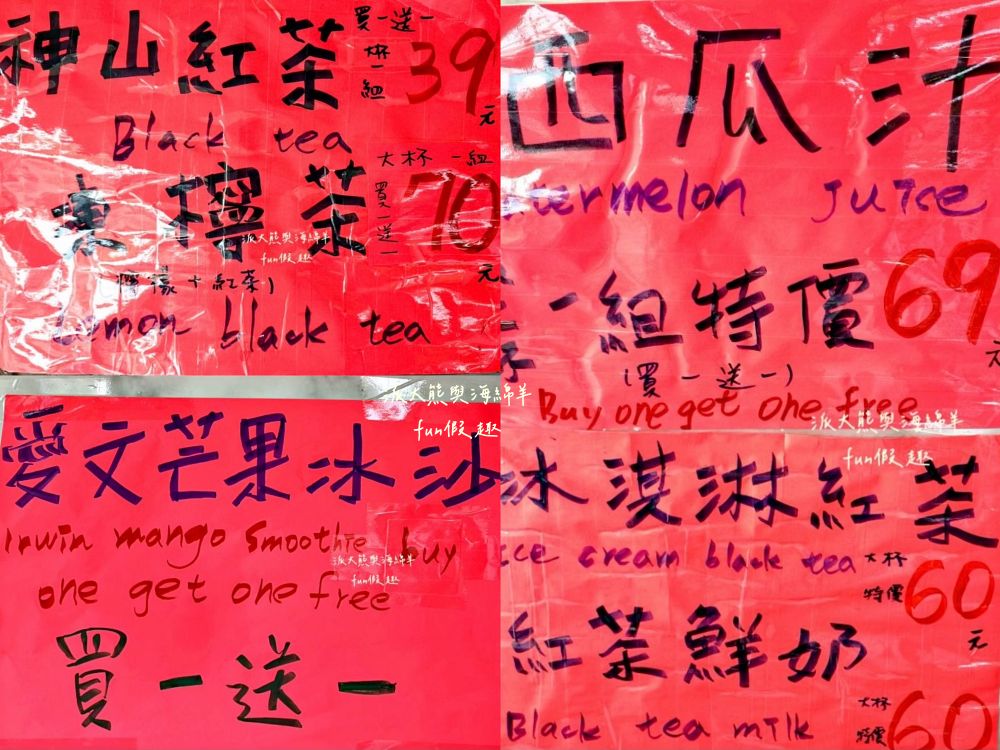 神山紅茶 買一送一 大杯一組 39元
Black tea
凍檸茶 大杯一組 買一送一 70元
(檸檬+紅茶)
Lemon black tea
派大熊與海綿羊
fun假趣
西瓜汁
Watermelon juice
一組特價 69元
(買一送一)
Buy one get one free
派大熊與海綿羊
fun假趣
愛文芒果冰沙
Irwin mango Smoothie buy
one get one free
買一送一
派大熊與海綿羊
fun假趣
派大熊與海綿羊
fun假趣
冰淇淋紅茶
Ice cream black tea 大杯特價 60元
紅茶鮮奶
Black tea milk 大杯特價 60